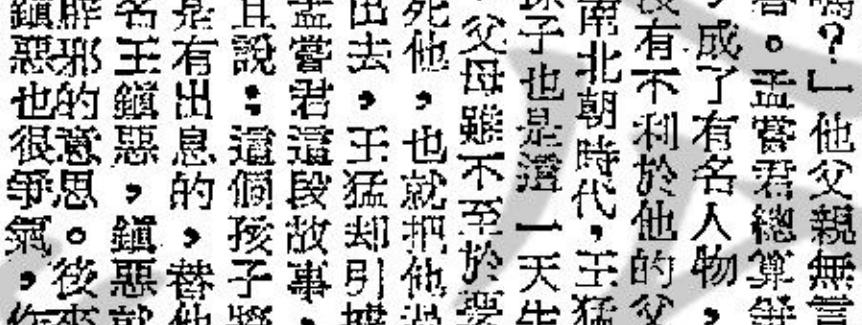 嗎？」他父親無言
。孟嘗君總算爭
成了有名人物，
有不利於他的父
南北朝時代，王猛
孫子也是這一天生
父母雖不至於要
死他，也就把他過
出去，王猛却引據
孟嘗君這段故事，
且說：這個孩子將
是有出息的，替他
名王鎮惡，鎮惡就
辟邪的意思。後來
鎮惡也很爭氣，作